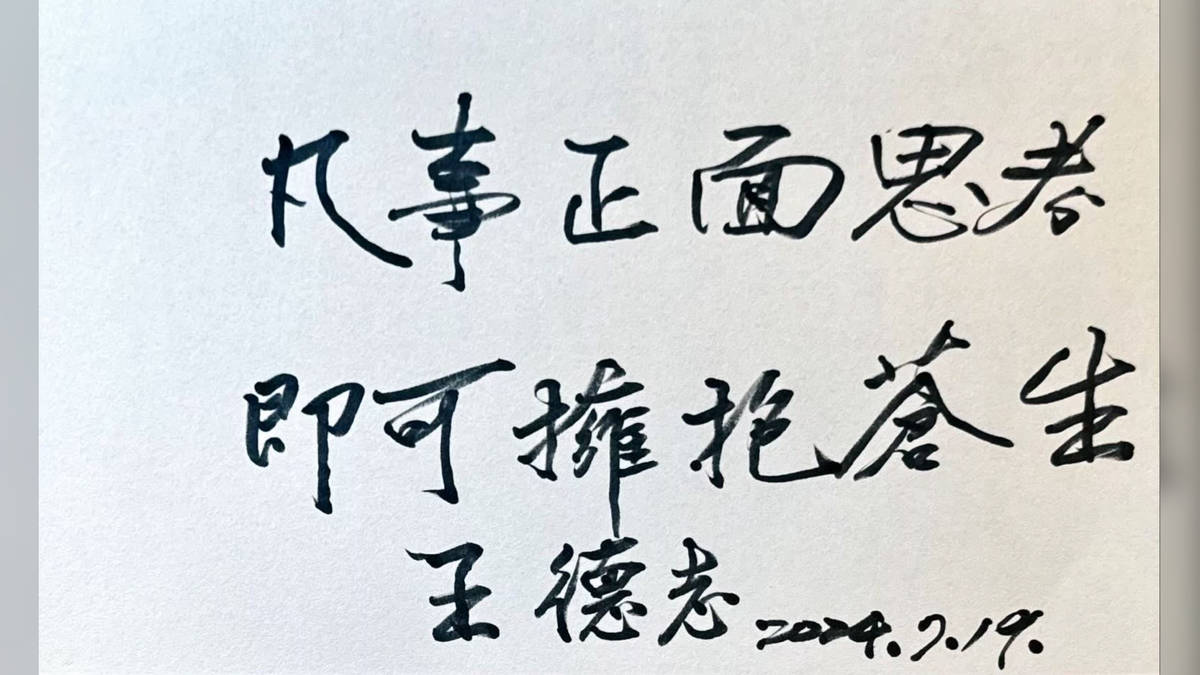 凡事正面思考
即可擁抱蒼生
王德志 2024.7.19.